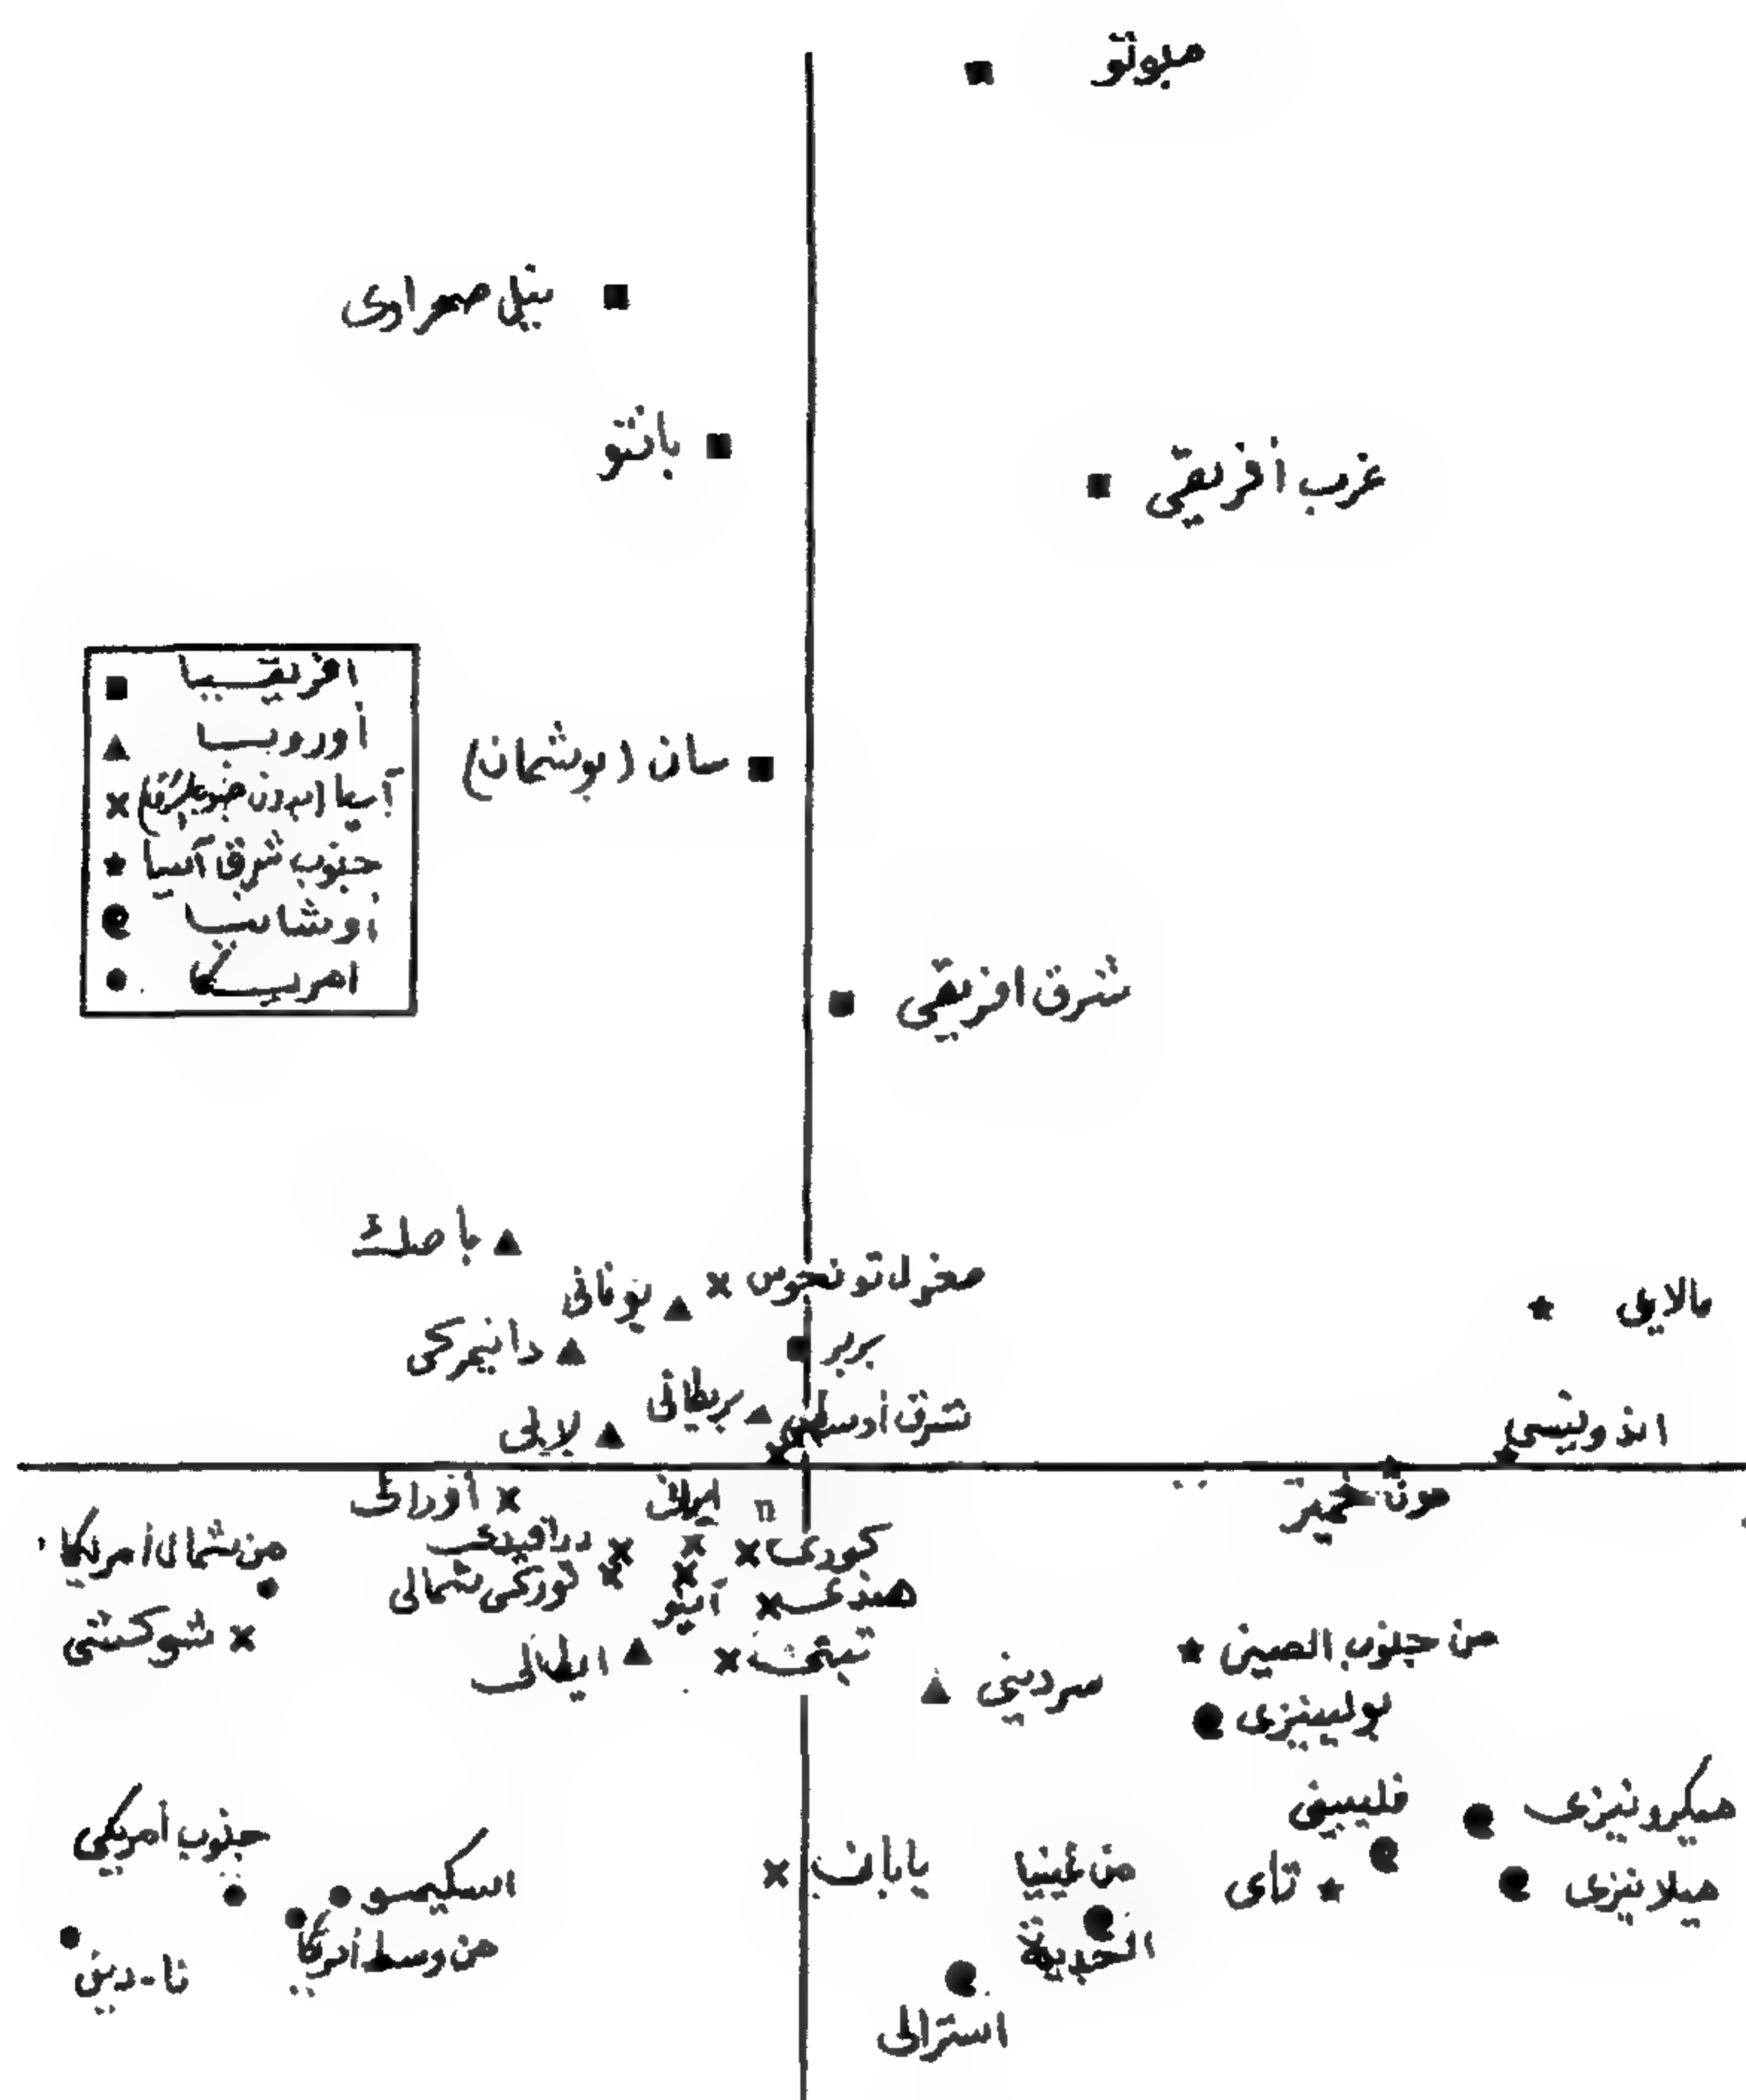 مبوتو
نيل صحراوى
بانتو
غرب أفريقى
أفريقيا
أوروبا
آسيا (بدون جنوب شرق)
جنوب شرق آسيا
أوشانيا
امريكا
سان (بوشمان)
شرق افريقى
باسك
مغول تونجوس
يونانى
مالايى
دانيمركى
بربر
بريطانى
شرق أوسطى
لابى
اندونيسى
أورالى
ايرانى
n
مون خمير
من شمال أمريكا
درافيدى
كورى
توركى شمالى
آينو
هندى
شوكتشى
ايطالى
تبتى
سردينى
من جنوب الصين
بولينيزى
جنوب أمريكى
فلبينى
ميكرونيزى
اسكيمو
يابانى
من غينيا
الجديدة
تاى
ميلانيزى
من وسط أمريكا
نا-دين
استرالى